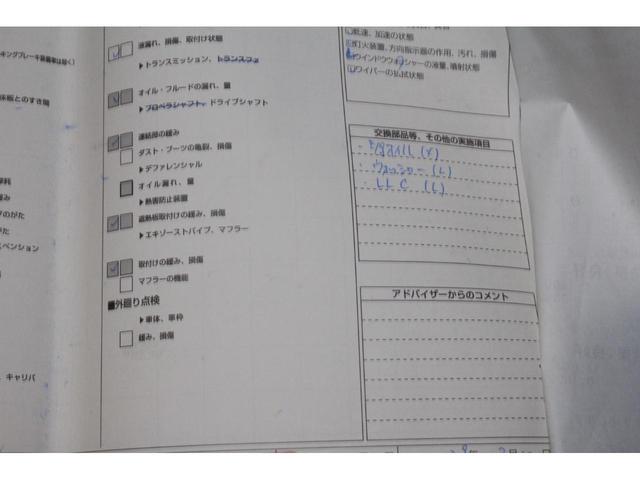 液漏れ、損傷、取付け状態
▶トランスミッション、トランスファ
オイル・フルードの漏れ、量
▶プロペラシャフト、ドライブシャフト
連結部の緩み
ダスト・ブーツの亀裂、損傷
▶デファレンシャル
オイル漏れ、量
▶熱害防止装置
遮熱板取付けの緩み、損傷
▶エキゾーストパイプ、マフラー
取付けの緩み、損傷
マフラーの機能
■外廻り点検
▶車体、車枠
緩み、損傷
低速、加速の状態
灯火装置、方向指示器の作用、汚れ、損傷
ウインドウウォッシャーの液量、噴射状態
ワイパーの払拭状態
交換部品等、その他の実施項目
ウォッシャー (L)
・LLC (L)
アドバイザーからのコメント
床板とのすき間
ペンション
キャリパ